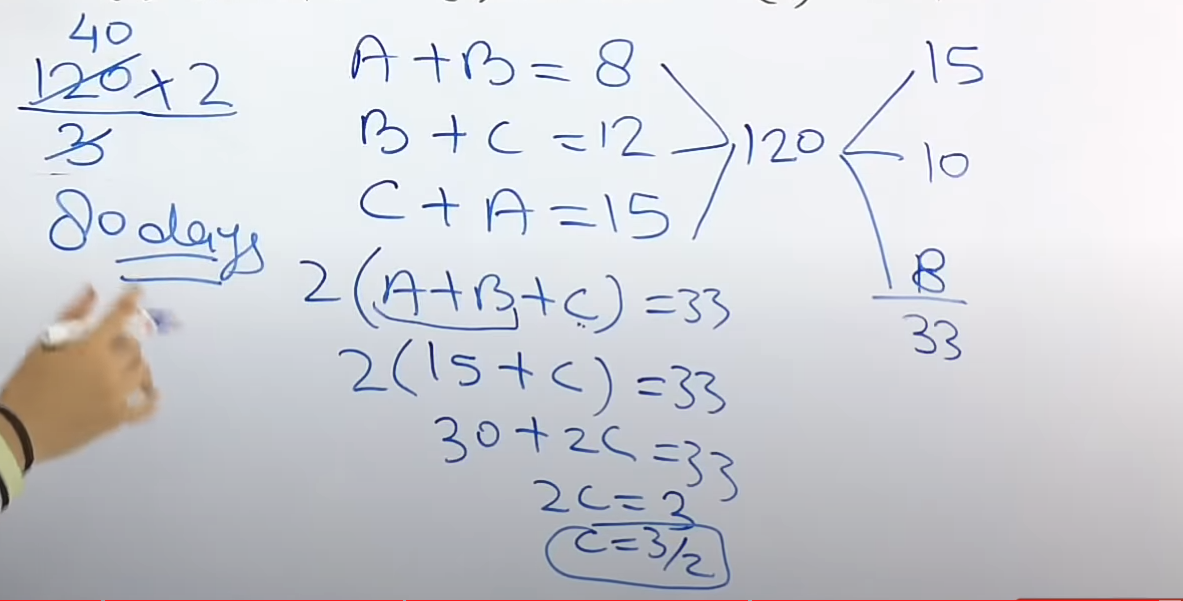 40
120 x 2
3
80 days
A + B = 8
B + C = 12
C + A = 15
120
15
10
8
33
2(A+B+C) = 33
2(15+C) = 33
30 + 2C = 33
2C = 3
C = 3/2